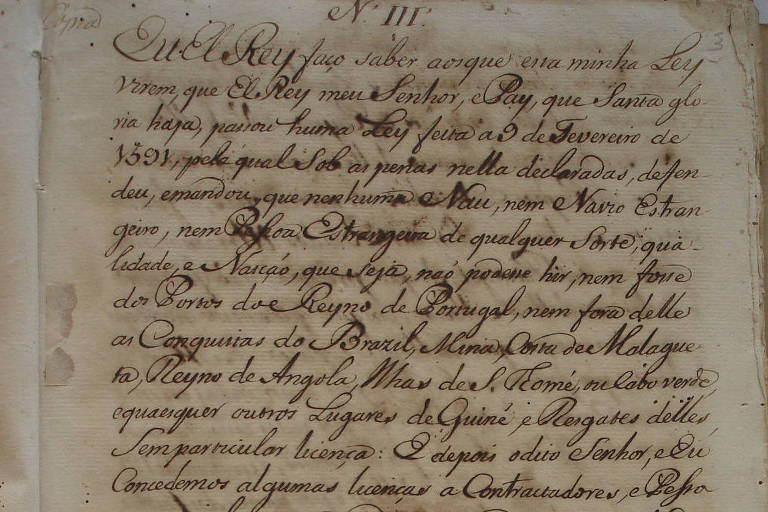 Copia
N. III.
Eu El Rey faço saber aos que esta minha Ley
virem, que El Rey meu Senhor, e Pay, que Santa glo-
ria haja, passou huma Ley feita a 9 de Fevereiro de
1591, pela qual sob as penas nella declaradas, defen-
deu, e mandou, que nenhuma Nau, nem Navio Estran-
geiro, nem Pessoa Estrangeira de qualquer Sorte, qua-
lidade, e Nasção, que seja, não podesse hir, nem fosse
dos Portos do Reyno de Portugal, nem fora delle
as Conquistas do Brazil, Mina, Costa de Malague-
ta, Reyno de Angola, Ilhas de S. Thomé, ou Cabo verde,
e quaesquer outros Lugares de Guiné, e Resgates delles,
Sem particular licença: E depois o dito Senhor, e Eu
Concedemos algumas licenças a Contractadores, e Pesso-